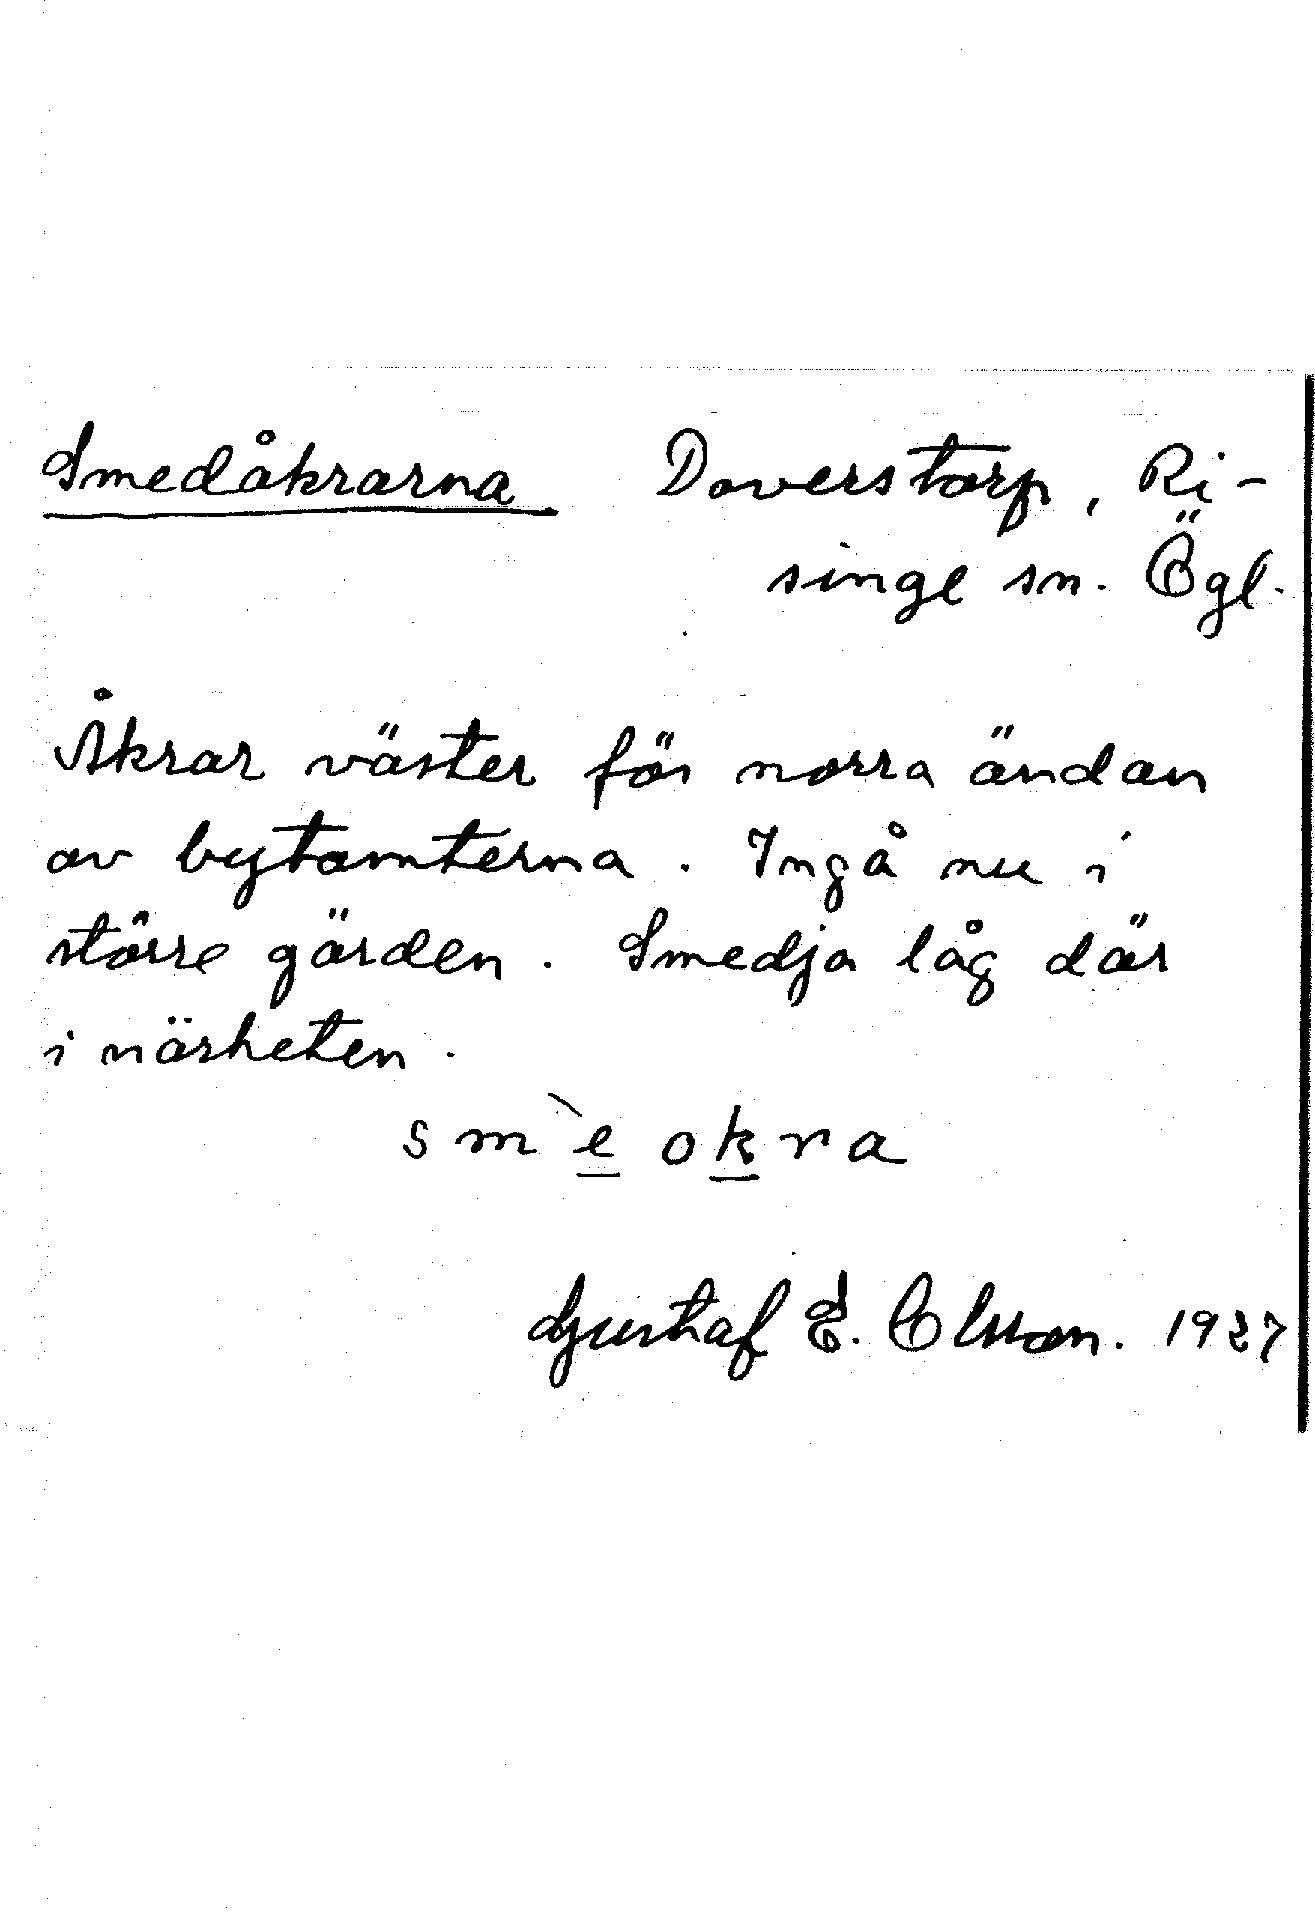 Smedåkrarna Doverstorp, Ri-
singe sn. Ögl.
Åkrar väster för norra ändan
av bytomterna. Ingå nu i
större gärden. Smedja låg där
i närheten.
sm`e okra
Gustaf E. Olsson. 1927